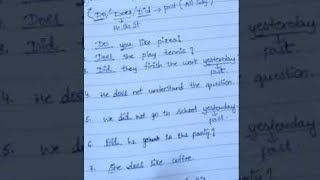 (Do/Does/Did → past (All Sub)
Do you like pizza?
Does she play tennis?
3. Did they finish the work yesterday
past
4. He does not understand the question.
5. We did not go to school yesterday
past.
6. Did he to the party?
7. She does like coffee.